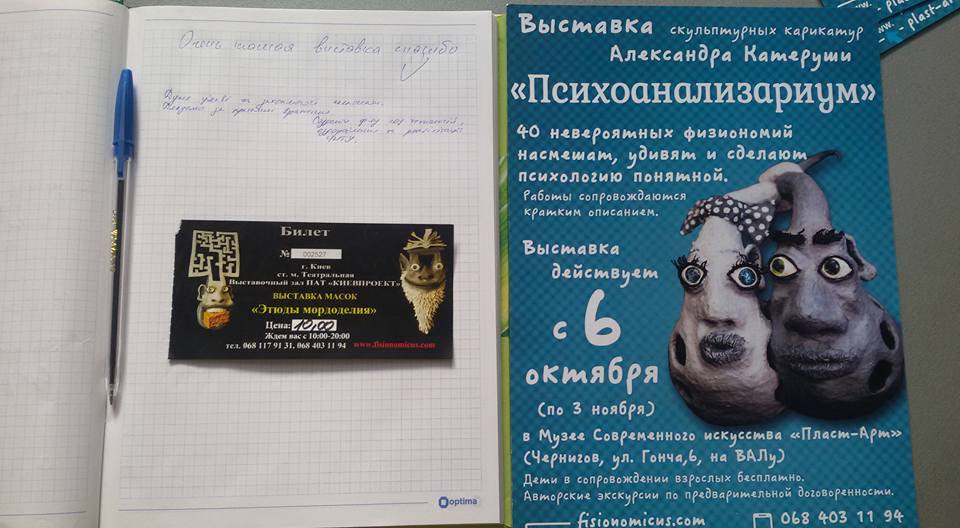 Очень классная виставка спасибо
Билет
№ 002527
г. Киев
ст. м. Театральная
Выставочный зал ПАТ «КИЕВПРОЕКТ»
ВЫСТАВКА МАСОК
«Этюды мордоделия»
Цена: 10,00
Ждем вас с 10:00-20:00
тел. 068 117 91 31, 068 403 11 94 www.fisionomicus.com
optima
Выставка скульптурных карикатур
Александра Катеруши
«Психоанализариум»
40 невероятных физиономий
насмешат, удивят и сделают
психологию понятной.
Работы сопровождаются
кратким описанием.
Выставка
действует
с 6
октября
(по 3 ноября)
в Музее Современного искусства «Пласт-Арт»
(Чернигов, ул. Гонча,6, на ВАЛу)
Дети в сопровождении взрослых бесплатно.
Авторские экскурсии по предварительной договоренности.
fisionomicus.com 068 403 11 94